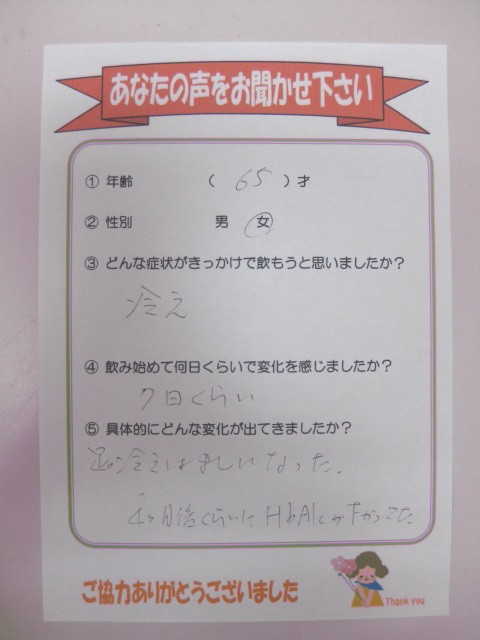 あなたの声をお聞かせ下さい
① 年齢 ( 65 ) 才
② 性別 男 女
③ どんな症状がきっかけで飲もうと思いましたか?
冷え
④ 飲み始めて何日くらいで変化を感じましたか?
7日くらい
⑤ 具体的にどんな変化が出てきましたか?
足の冷えはましになった。
4ヶ月後くらいにHbA1cが下がってた
ご協力ありがとうございました
Thank you